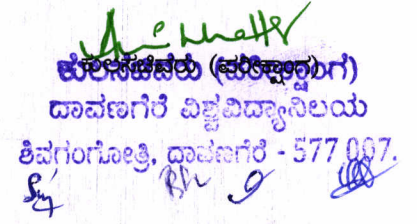 ಕುಲಸಚಿವರು (ಪರೀಕ್ಷಾಂಗ)
ದಾವಣಗೆರೆ ವಿಶ್ವವಿದ್ಯಾನಿಲಯ
ಶಿವಗಂಗೋತ್ರಿ, ದಾವಣಗೆರೆ - 577 007.